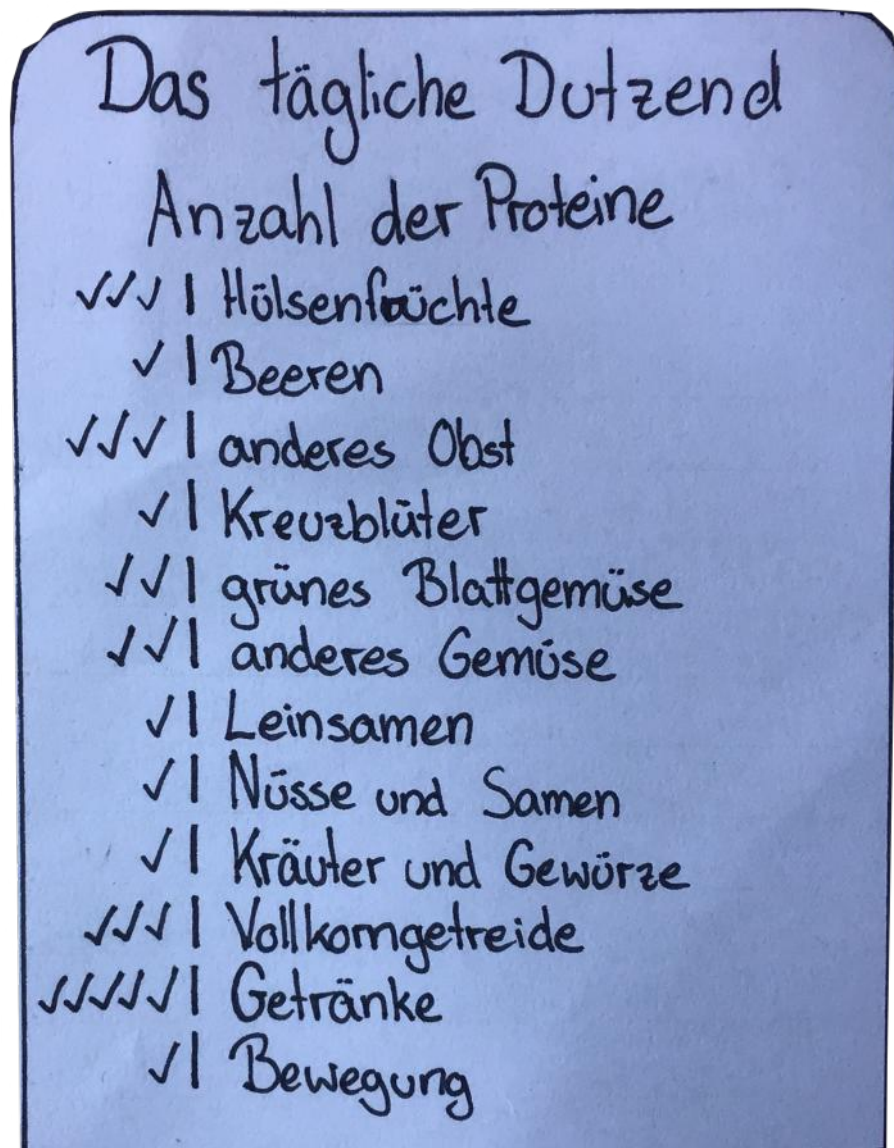 Das tägliche Dutzend
Anzahl der Proteine
✓✓✓ | Hülsenfrüchte
✓ | Beeren
✓✓✓ | anderes Obst
✓ | Kreuzblüter
✓✓ | grünes Blattgemüse
✓✓ | anderes Gemüse
✓ | Leinsamen
✓ | Nüsse und Samen
✓ | Kräuter und Gewürze
✓✓✓ | Vollkorngetreide
✓✓✓✓✓ | Getränke
✓ | Bewegung